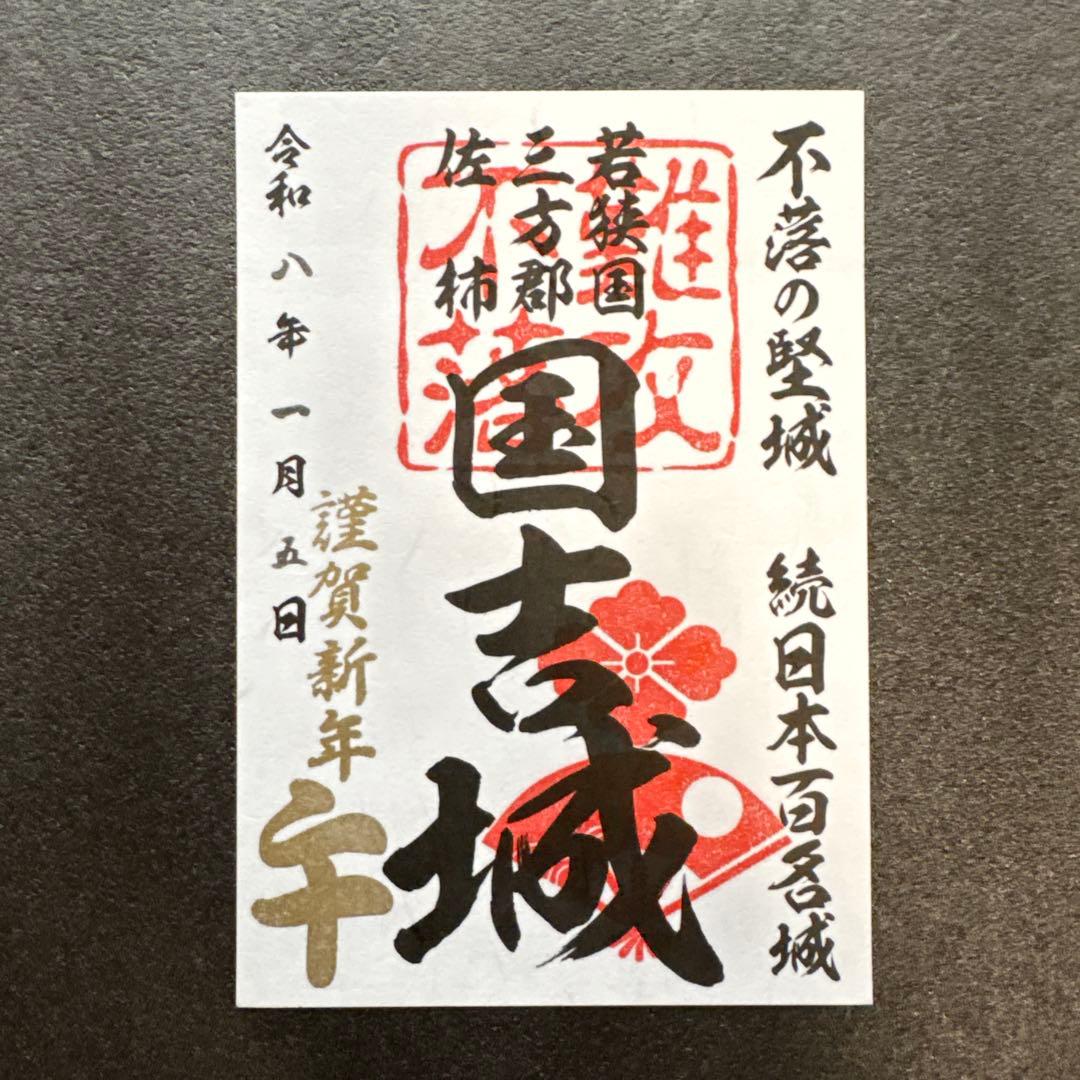 不落の堅城
続日本百名城
若狭国
三方郡
佐柿
難攻
不落
国吉城
謹賀新年
午
令和八年一月五日